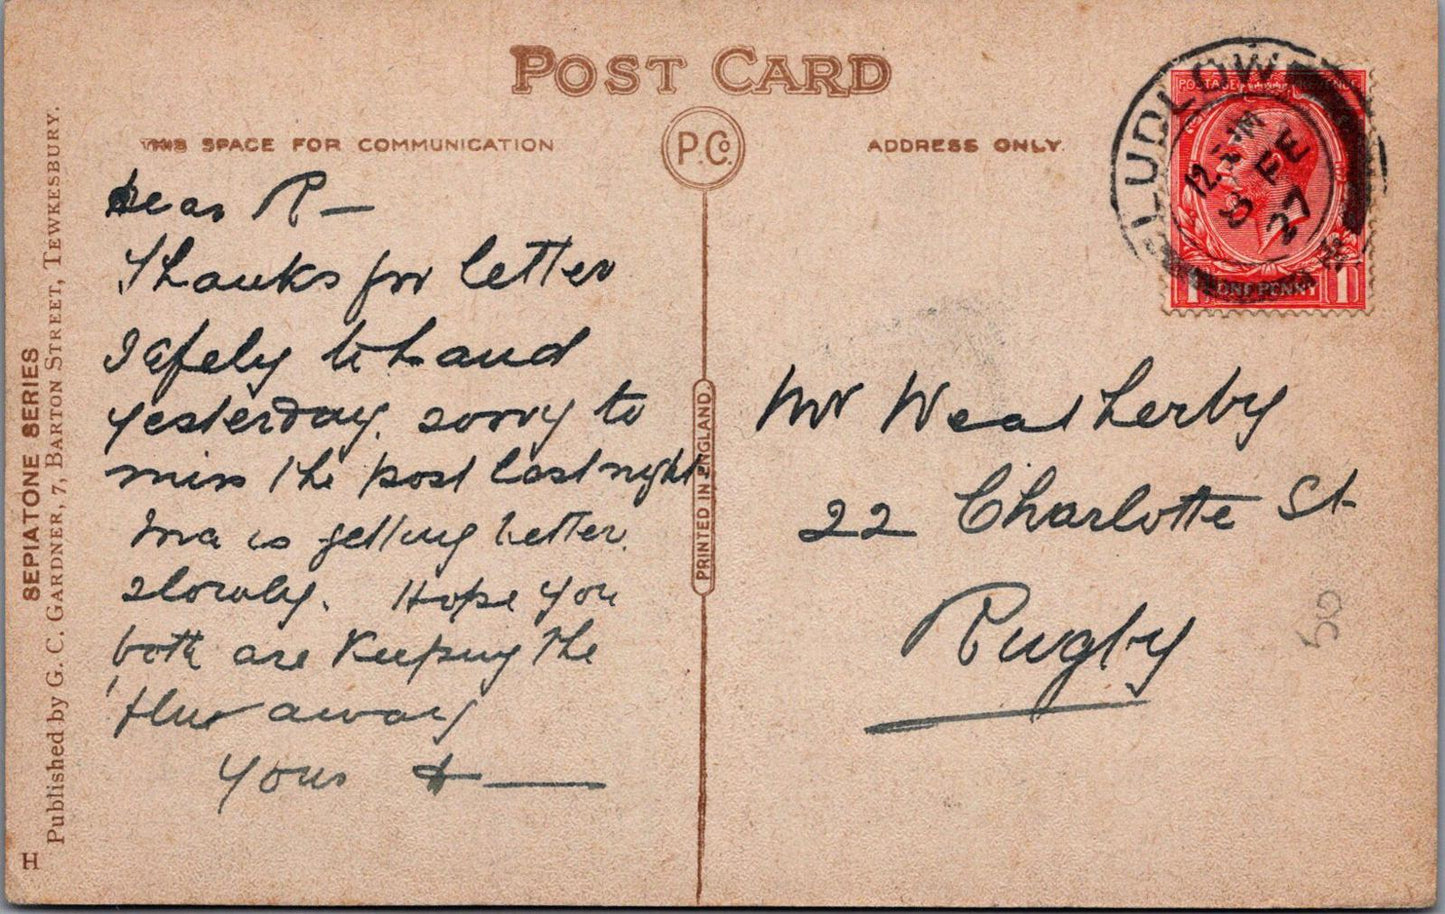 POST CARD
THIS SPACE FOR COMMUNICATION
P.Co.
ADDRESS ONLY.
Dear R—
Thanks for letter
safely to hand
yesterday. sorry to
miss the post last night
Ma is getting better
slowly. Hope you
both are keeping the
'flue away
Yours
Mr Weatherby
22 Charlotte St
Rugby
LUDLOW
12.
8 FE
27
POSTAGE
1 ONE PENNY 1
PRINTED IN ENGLAND.
SEPIATONE SERIES
Published by G. C. GARDNER, 7, BARTON STREET, TEWKESBURY.
H
50